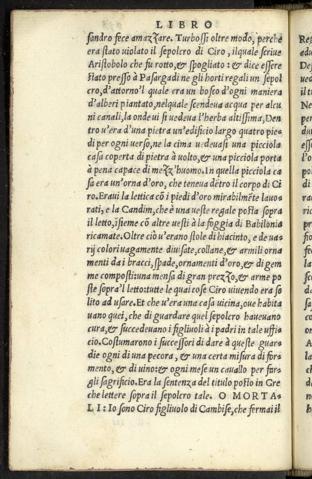 LIBRO
sandro fece amazzare. Turbossi oltre modo, perche
era stato uiolato il sepolcro di Ciro, ilquale scriue
Aristobolo che fu rotto, & spogliato: & dice essere
stato presso à Pasargadi ne gli horti regali un sepol
cro, d'attorno'l quale era un bosco d'ogni maniera
d'alberi piantato, nelquale scendeua acqua per alcu
ni canali, la onde ui si uedeua l'herba altissima, Den
tro u'era d'una pietra un'edificio largo quattro pie-
di per ogni uerso, ne la cima uedeuasi una picciola
casa coperta di pietra à uolto, & una picciola porta
à pena capace di mezz'huomo. In quella picciola ca
sa era un'orna d'oro, che teneua dētro il corpo di Ci
ro. Eraui la lettica cō i piedi d'oro mirabilmēte lauo
rati, e la Candim, che è una ueste regale posta sopra
il letto, isieme cō altre uesti à la foggia di Babilonia
ricamate. Oltre ciò u'erano stole di hiacinto, e de ua-
rij colori uagamente diuisate, collane, & armili orna
menti da i bracci, spade, ornamenti d'oro, & di gem
me composti: una mensa di gran prezzo, & arme po
ste sopra'l letto: tutte le quai cose Ciro uiuendo era so
lito ad usare. Et che u'era una casa uicina, oue habita
uano quei, che di guardare quel sepolcro haueuano
cura, & succedeuano i figliuoli à i padri in tale uffi-
cio. Costumarono i successori di dare à queste guar-
die ogni dì una pecora, & una certa misura di for-
mento, & di uino: & ogni mese un cauallo per far-
gli sagrificio. Era la sentenza del titulo posto in Gre
che lettere sopra il sepolcro tale. O MORTA-
LI: Io sono Ciro figliuolo di Cambise, che fermai il